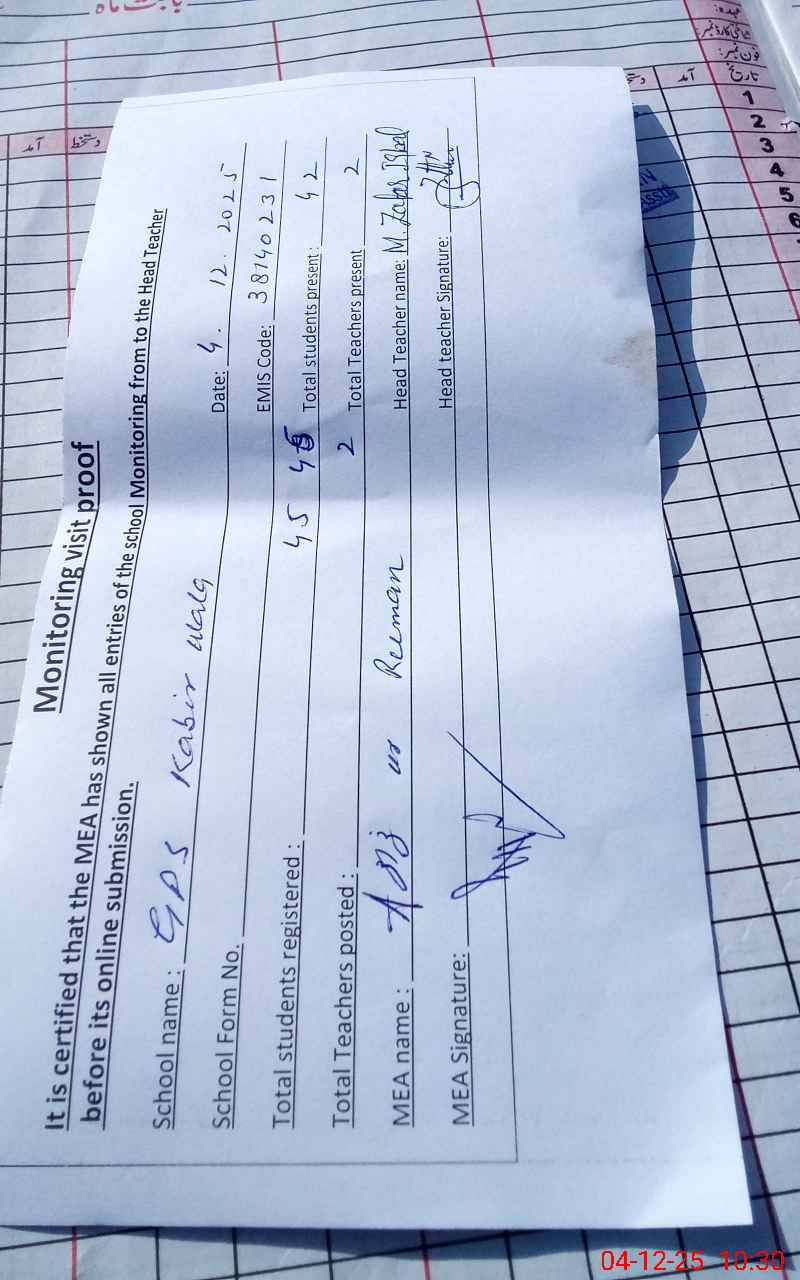 بابت ماہ
عہدہ:
شناختی کارڈ نمبر:
فون نمبر:
تاریخ آمد
1
2
3
4
5
6
آمد دستخط
Monitoring visit proof
It is certified that the MEA has shown all entries of the school Monitoring from to the Head Teacher
before its online submission.
School name : GPS Kabir wala Date: 4. 12. 2025
School Form No. EMIS Code: 38140231
Total students registered : 45 45 Total students present : 42
Total Teachers posted : 2 Total Teachers present 2
MEA name : ur Reeman Head Teacher name: M. Zafar Iqbal
MEA Signature: Head teacher Signature:
04-12-25 10:30